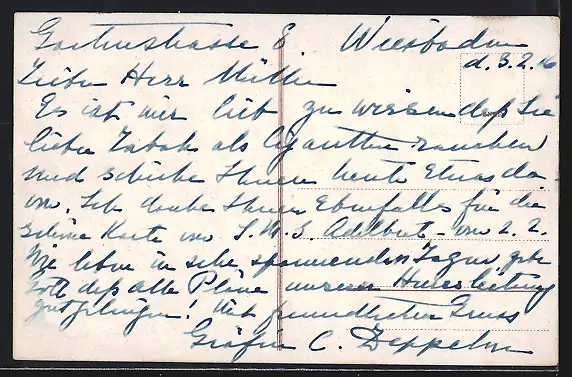 Gartenstrasse 8. Wiesbaden
d. 3.2.16
Lieber Herr Müller
Es ist mir lieb zu wissen daß Sie
lieber Tabak als Cigaretten rauchen
und schicke Ihnen heute Etwas da
von. Ich danke Ihnen Ebenfalls für die
schöne Karte von S.M.S. Adalbert - vom 2.2.
Wir leben in sehr spannenden Tagen gebe
Gott daß alle Pläne unserer Heeresleitung
gut gelingen! Mit freundlichen Gruss
Gräfin C. Zeppelin